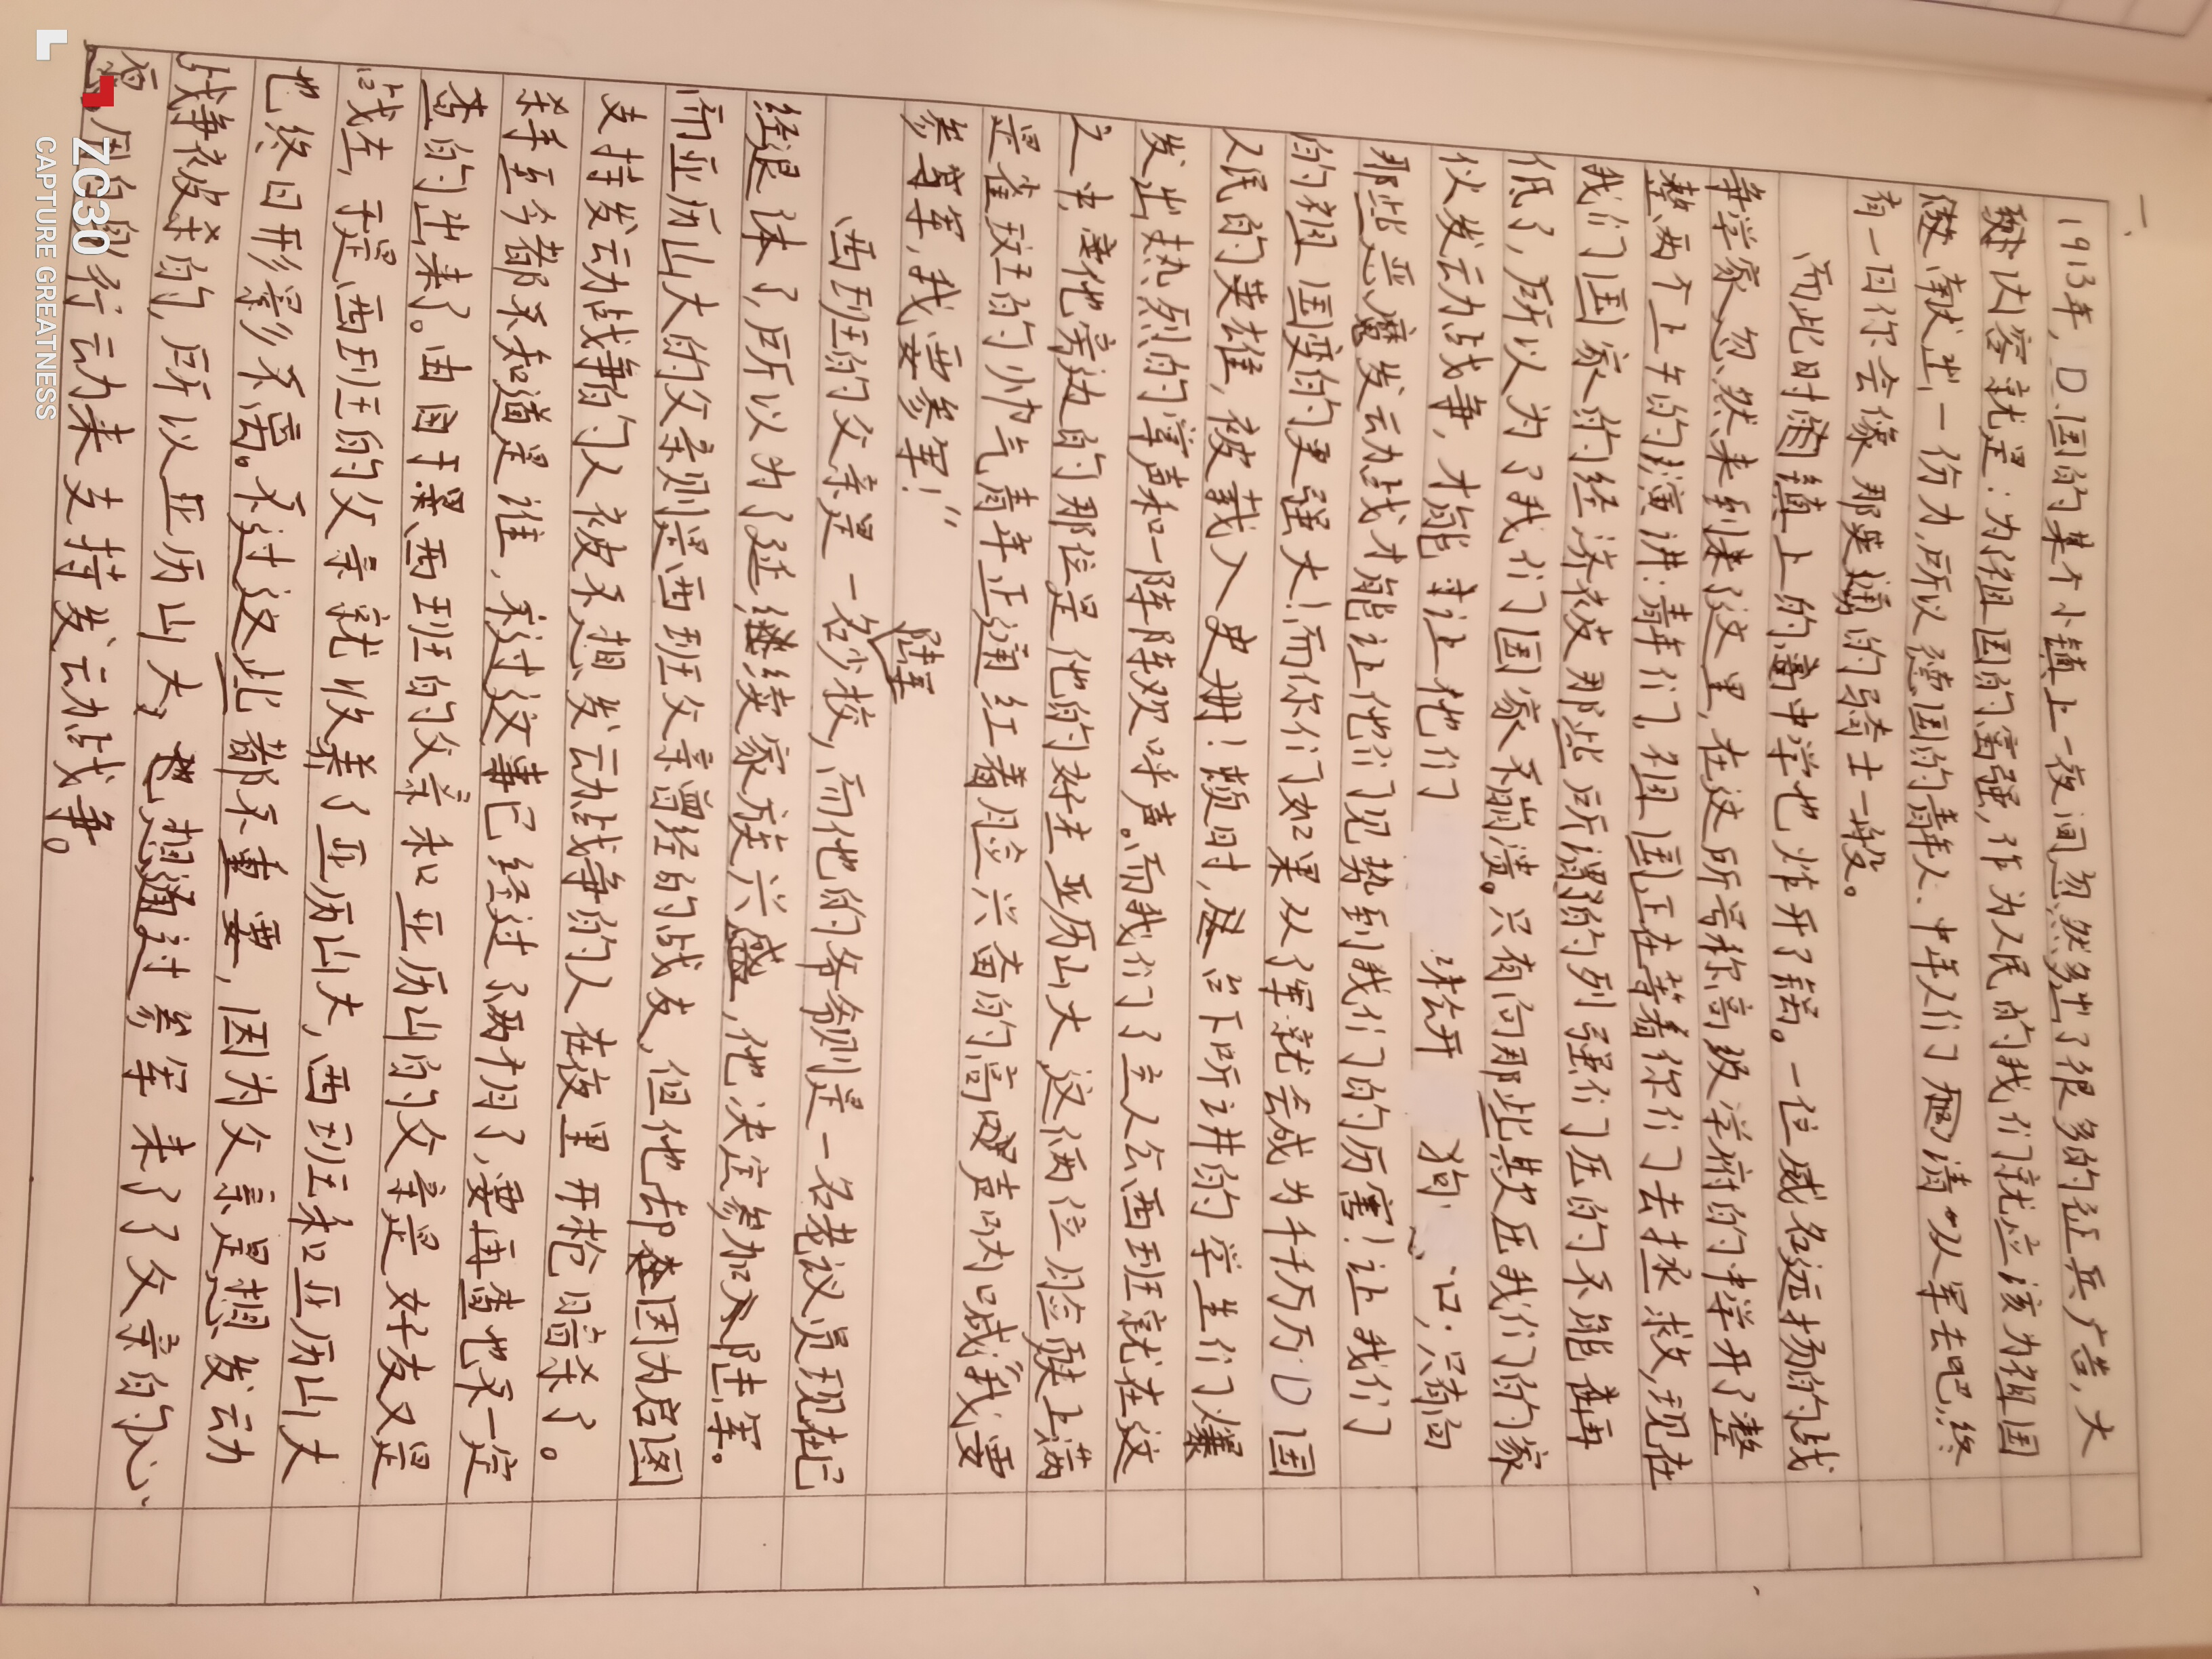 一、
1913年,D国的某个小镇上一夜间忽然多出了很多的征兵广告,大
致内容就是:为祖国的富强,作为人民的我们就应该为祖国
做献出一份力,所以德国的青年人、中年人们 请“从军去吧,终
有一日你会像那英勇的骑士一般。
而此时镇上的高中学也炸开了锅。一位威名远扬的战
争学家忽然来到了这里,在这所号称高级学府的中学开了整
整两个上午的演讲:青年们,祖国正在等着你们去拯救,现在
我们国家的经济被那些所谓的列强们压的不能再
低了,所以为了我们国家不崩溃。只有向那些欺压我们的家
伙发动战争,才能让他们 松开 狗 口;只有向
那些恶魔发动战才能让他们见势到我们的厉害!让我们
的祖国变的更强大!而你们如果从了军就会成为千千万万D国
人民的英雄,被载入史册!顿时,台下听讲的学生们爆
发出热烈的掌声和一阵阵欢呼声。而我们了主人公西班就在这
之中,他旁边的那位是他的好友亚历山大这俩位脸颊上满
是雀斑的帅气青年正通红着脸兴奋的高声呐喊“我要
参军,我要参军!”
陆军
西班的父亲是一名少校,而他的爷爷则是一名老议员现在已
经退休了,所以为了延续家族兴盛,他决定参加陆军。
而亚历山大的父亲则是西班父亲曾经的战友,但他却因为启图
支持发动战争的人被不想发动战争的人在夜里开枪暗杀了。
杀手至今都不知道是谁,不过这事已经过了俩个月了,要再查也不一定
查的出来了。由于西班的父亲和亚历山的父亲是好友又是
战友,于是西班的父亲就收养了亚历山大,西班和亚历山大
也终日形影不离。不过这些都不重要,因为父亲是想发动
战争被杀的,所以亚历山大,也想通过参军来了了父亲的心
愿,用自身行动来支持发动战争。
ZC30
CAPTURE GREATNESS